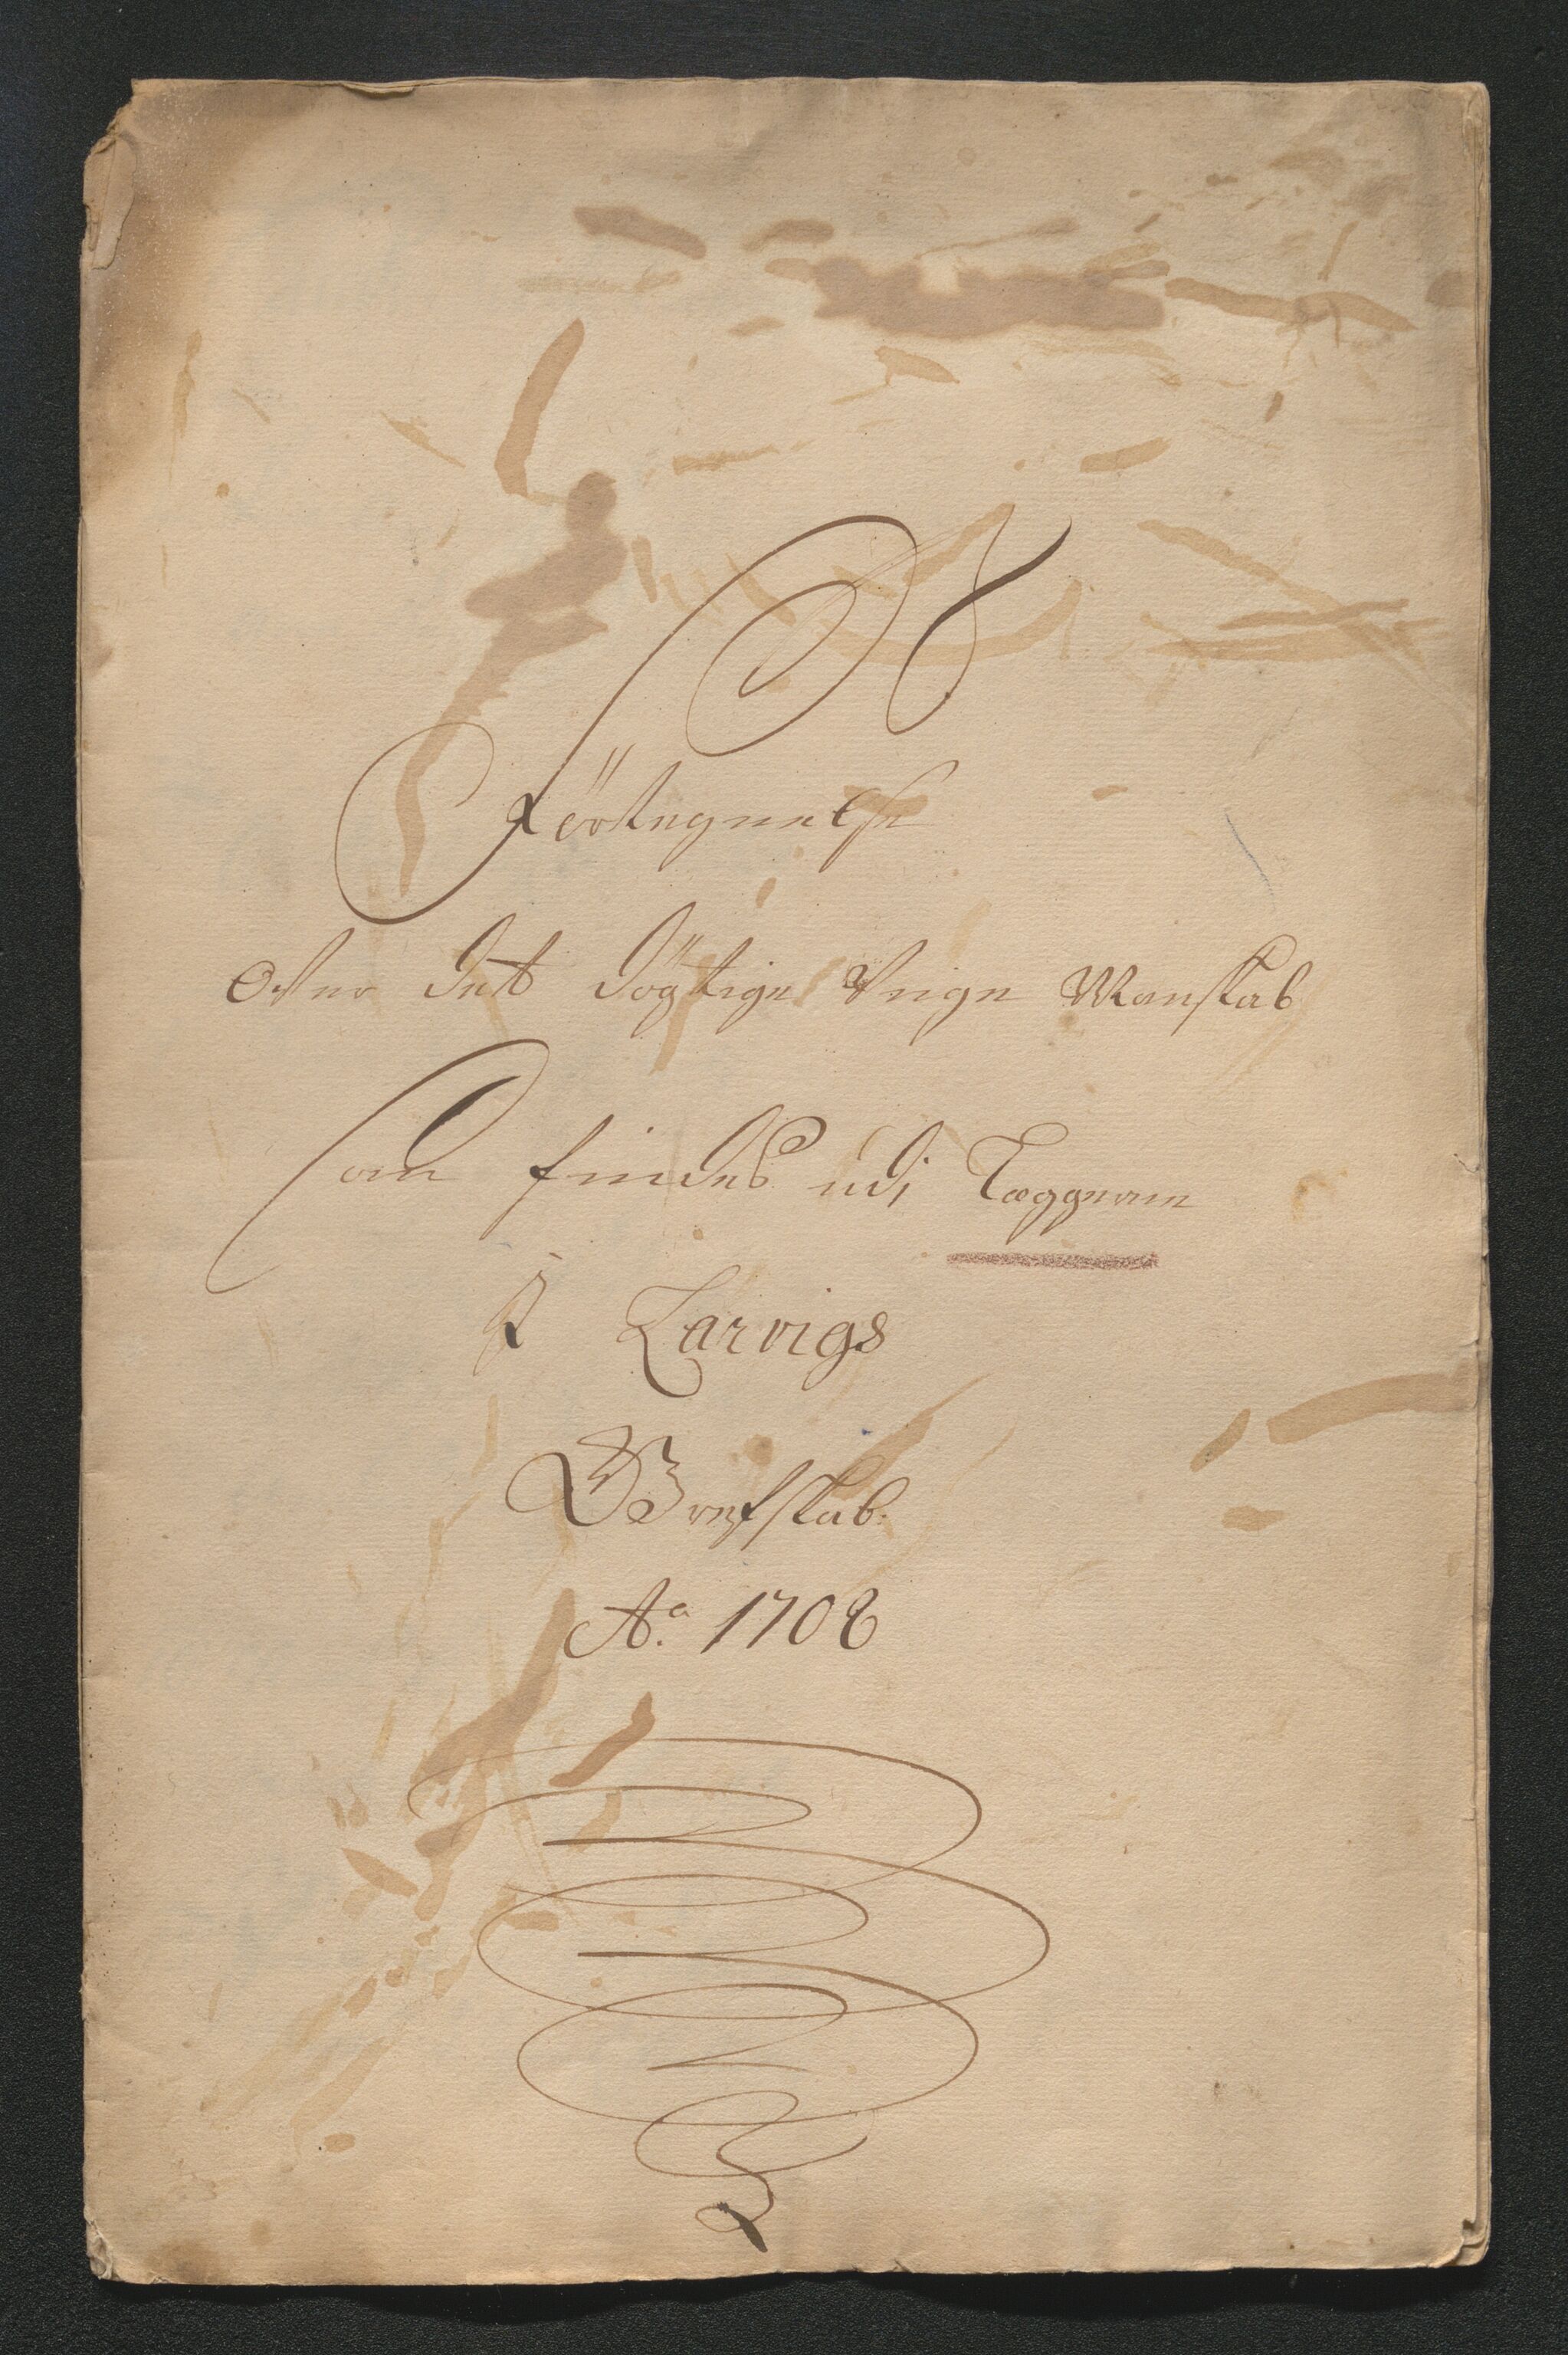 Förtegnelse
Ofver det dögtige Unge Manskab
Som findes udj Læggerne
I Larvigs
Grefskab.
Aº. 1708